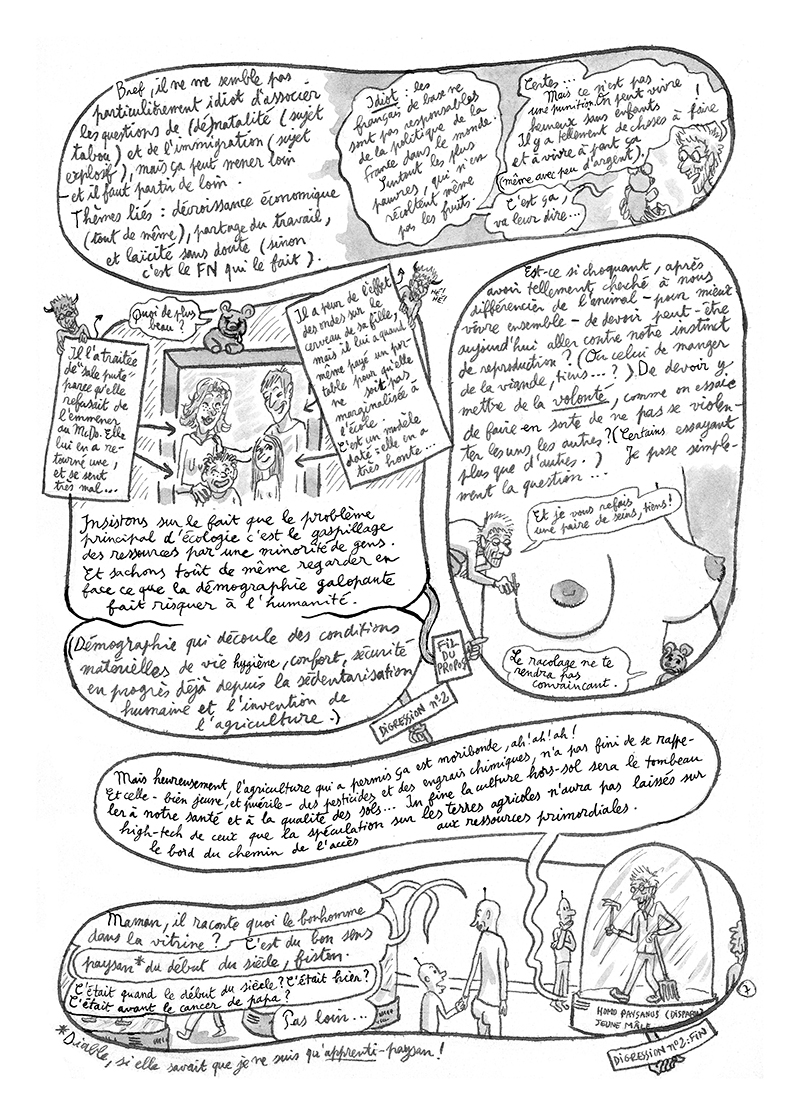 Bref, il ne me semble pas
particulièrement idiot d'associer
les questions de (dé)natalité (sujet
tabou) et de l'immigration (sujet
explosif), mais ça peut mener loin
et il faut partir de loin.
Thèmes liés : décroissance économique
(tout de même), partage du travail,
et laïcité sans doute (sinon
c'est le FN qui le fait).
Idiot : les
français de base ne
sont pas responsables
de la politique de la
France dans le monde.
Surtout les plus
pauvres, qui n'en
récoltent même
pas les fruits.
Certes...
Mais ce n'est pas
une punition. On peut vivre
heureux sans enfants !
Il y a tellement de choses à faire
et à vivre à part ça
(même avec peu d'argent).
C'est ça,
va leur dire...
Quoi de plus
beau ?
HÉ!
HÉ!
Il l'a traitée
de "sale pute"
parce qu'elle
refusait de
l'emmener
au McDo. Elle
lui en a re-
tourné une,
et se sent
très mal...
Il a peur de l'effet
des ondes sur le
cerveau de sa fille,
mais il lui a quand
même payé un por-
table pour qu'elle
ne soit pas
marginalisée à
l'école.
C'est un modèle
daté : elle en a
très honte...
Insistons sur le fait que le problème
principal d'écologie c'est le gaspillage
des ressources par une minorité de gens.
Et sachons tout de même regarder en
face ce que la démographie galopante
fait risquer à l'humanité.
Est-ce si choquant, après
avoir tellement cherché à nous
différencier de l'animal - pour mieux
vivre ensemble - de devoir peut-être
aujourd'hui aller contre notre instinct
de reproduction ? (Ou celui de manger
de la viande, tiens... ?) De devoir y
mettre de la volonté, comme on essaie
de faire en sorte de ne pas se violen-
ter les uns les autres ? (Certains essayant
plus que d'autres.) Je pose simple-
ment la question...
Et je vous refais
une paire de seins, tiens !
Le racolage ne te
rendra pas
convaincant.
Démographie qui découle des conditions
matérielles de vie hygiène, confort, sécurité
en progrès déjà depuis la sédentarisation
humaine et l'invention de
l'agriculture.)
FIL
DU
PROPOS
DIGRESSION n°2
Mais heureusement, l'agriculture qui a permis ça est moribonde, ah! ah! ah!
Et celle - bien jeune, et puérile - des pesticides et des engrais chimiques, n'a pas fini de se rappe-
ler à notre santé et à la qualité des sols... In fine la culture hors-sol sera le tombeau
high-tech de ceux que la spéculation sur les terres agricoles n'aura pas laissés sur
le bord du chemin de l'accès aux ressources primordiales.
Maman, il raconte quoi le bonhomme
dans la vitrine ?
C'est du bon sens
paysan* du début du siècle, fiston.
C'était quand le début du siècle ? C'était hier ?
C'était avant le cancer de papa ?
Pas loin...
HOMO PAYSANUS (DISPARU)
JEUNE MÂLE
7
DIGRESSION n°2 : FIN
*Diable, si elle savait que je ne suis qu'apprenti-paysan !